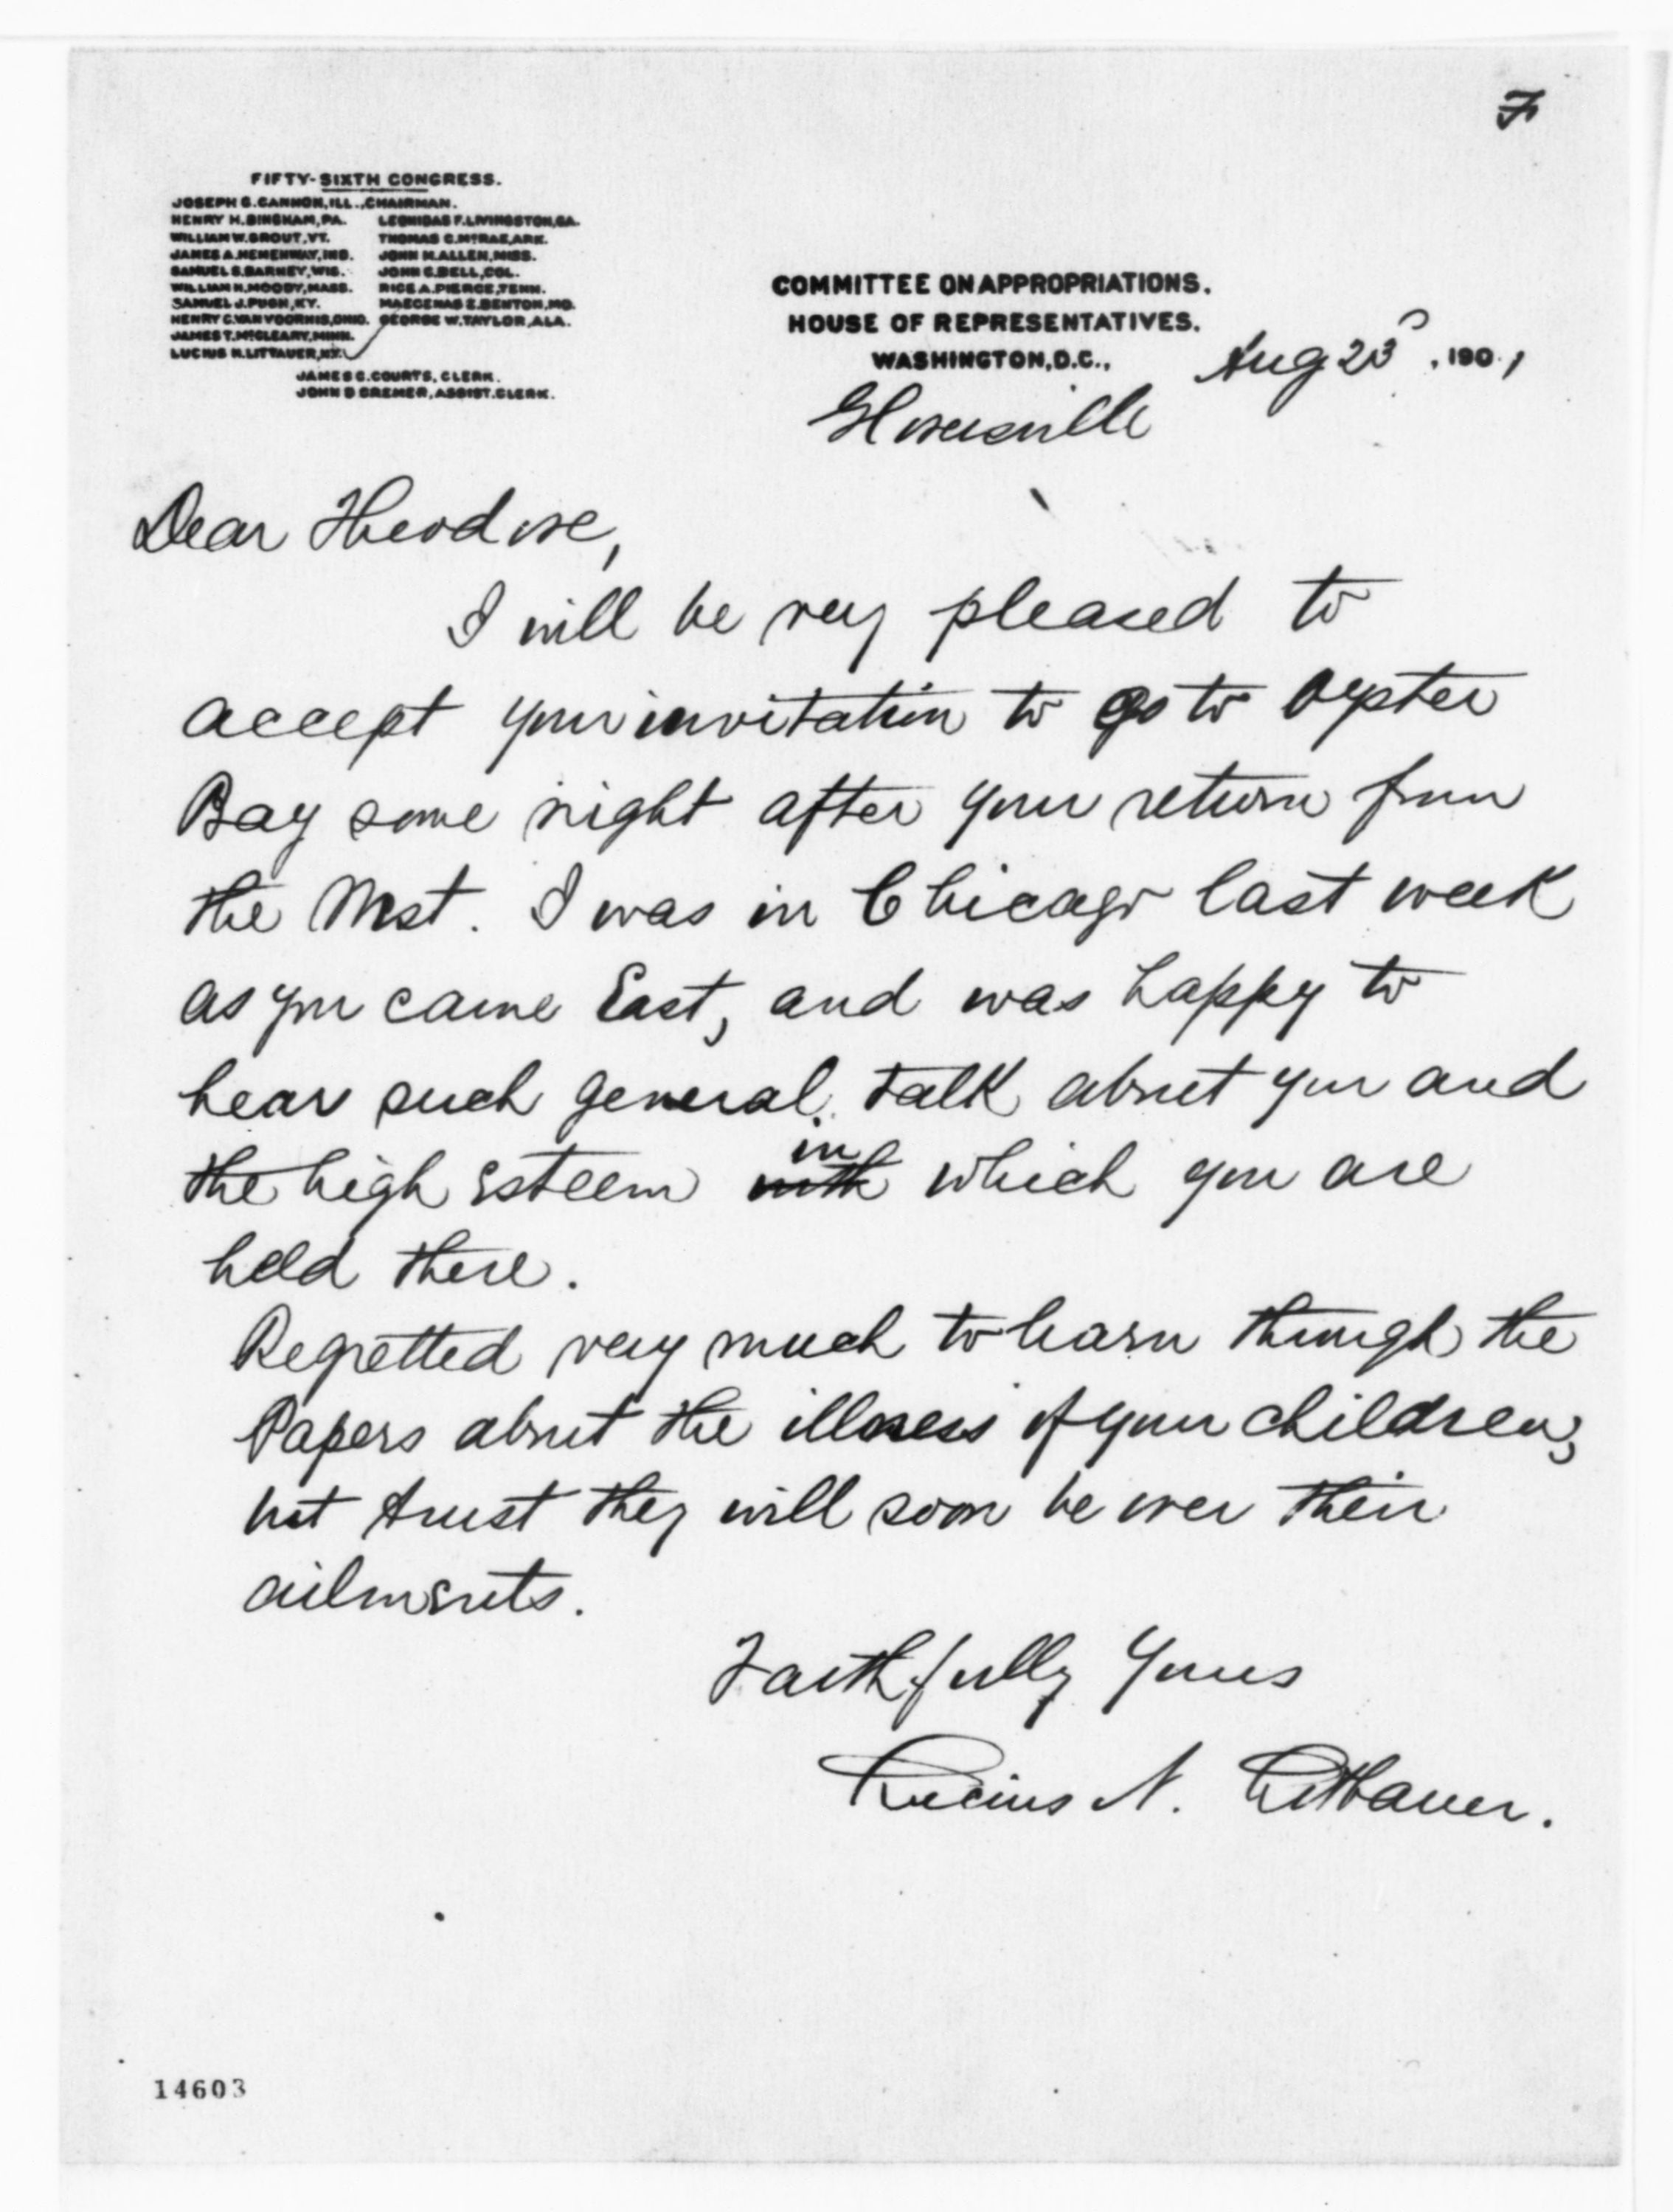 F
FIFTY-SIXTH CONGRESS.
JOSEPH G. CANNON, ILL., CHAIRMAN.
HENRY H. BINGHAM, PA. LEONIDAS F. LIVINGSTON, GA.
WILLIAM W. GROUT, VT. THOMAS C. McRAE, ARK.
JAMES A. HEMENWAY, IND. JOHN M. ALLEN, MISS.
SAMUEL S. BARNEY, WIS. JOHN C. BELL, COL.
WILLIAM H. MOODY, MASS. RICE A. PIERCE, TENN.
SAMUEL J. PUGH, KY. MAECENAS E. BENTON, MO.
HENRY C. VAN VOORHIS, OHIO. GEORGE W. TAYLOR, ALA.
JAMES T. McCLEARY, MINN.
LUCIUS N. LITTAUER, N.Y.
JAMES C. COURTS, CLERK.
JOHN D CREMER, ASSIST. CLERK.
COMMITTEE ON APPROPRIATIONS.
HOUSE OF REPRESENTATIVES.
WASHINGTON, D.C., Aug 23, 1901
Gloversville
Dear Theodore,
I will be very pleased to
accept your invitation to go to Oyster
Bay some night after your return from
the West. I was in Chicago last week
as you came East, and was happy to
hear such general talk about you and
the high esteem with in which you are
held there.
Regretted very much to learn through the
Papers about the illness of your children,
but trust they will soon be over their
ailments.
Faithfully Yours
Lucius N. Littauer.
14603